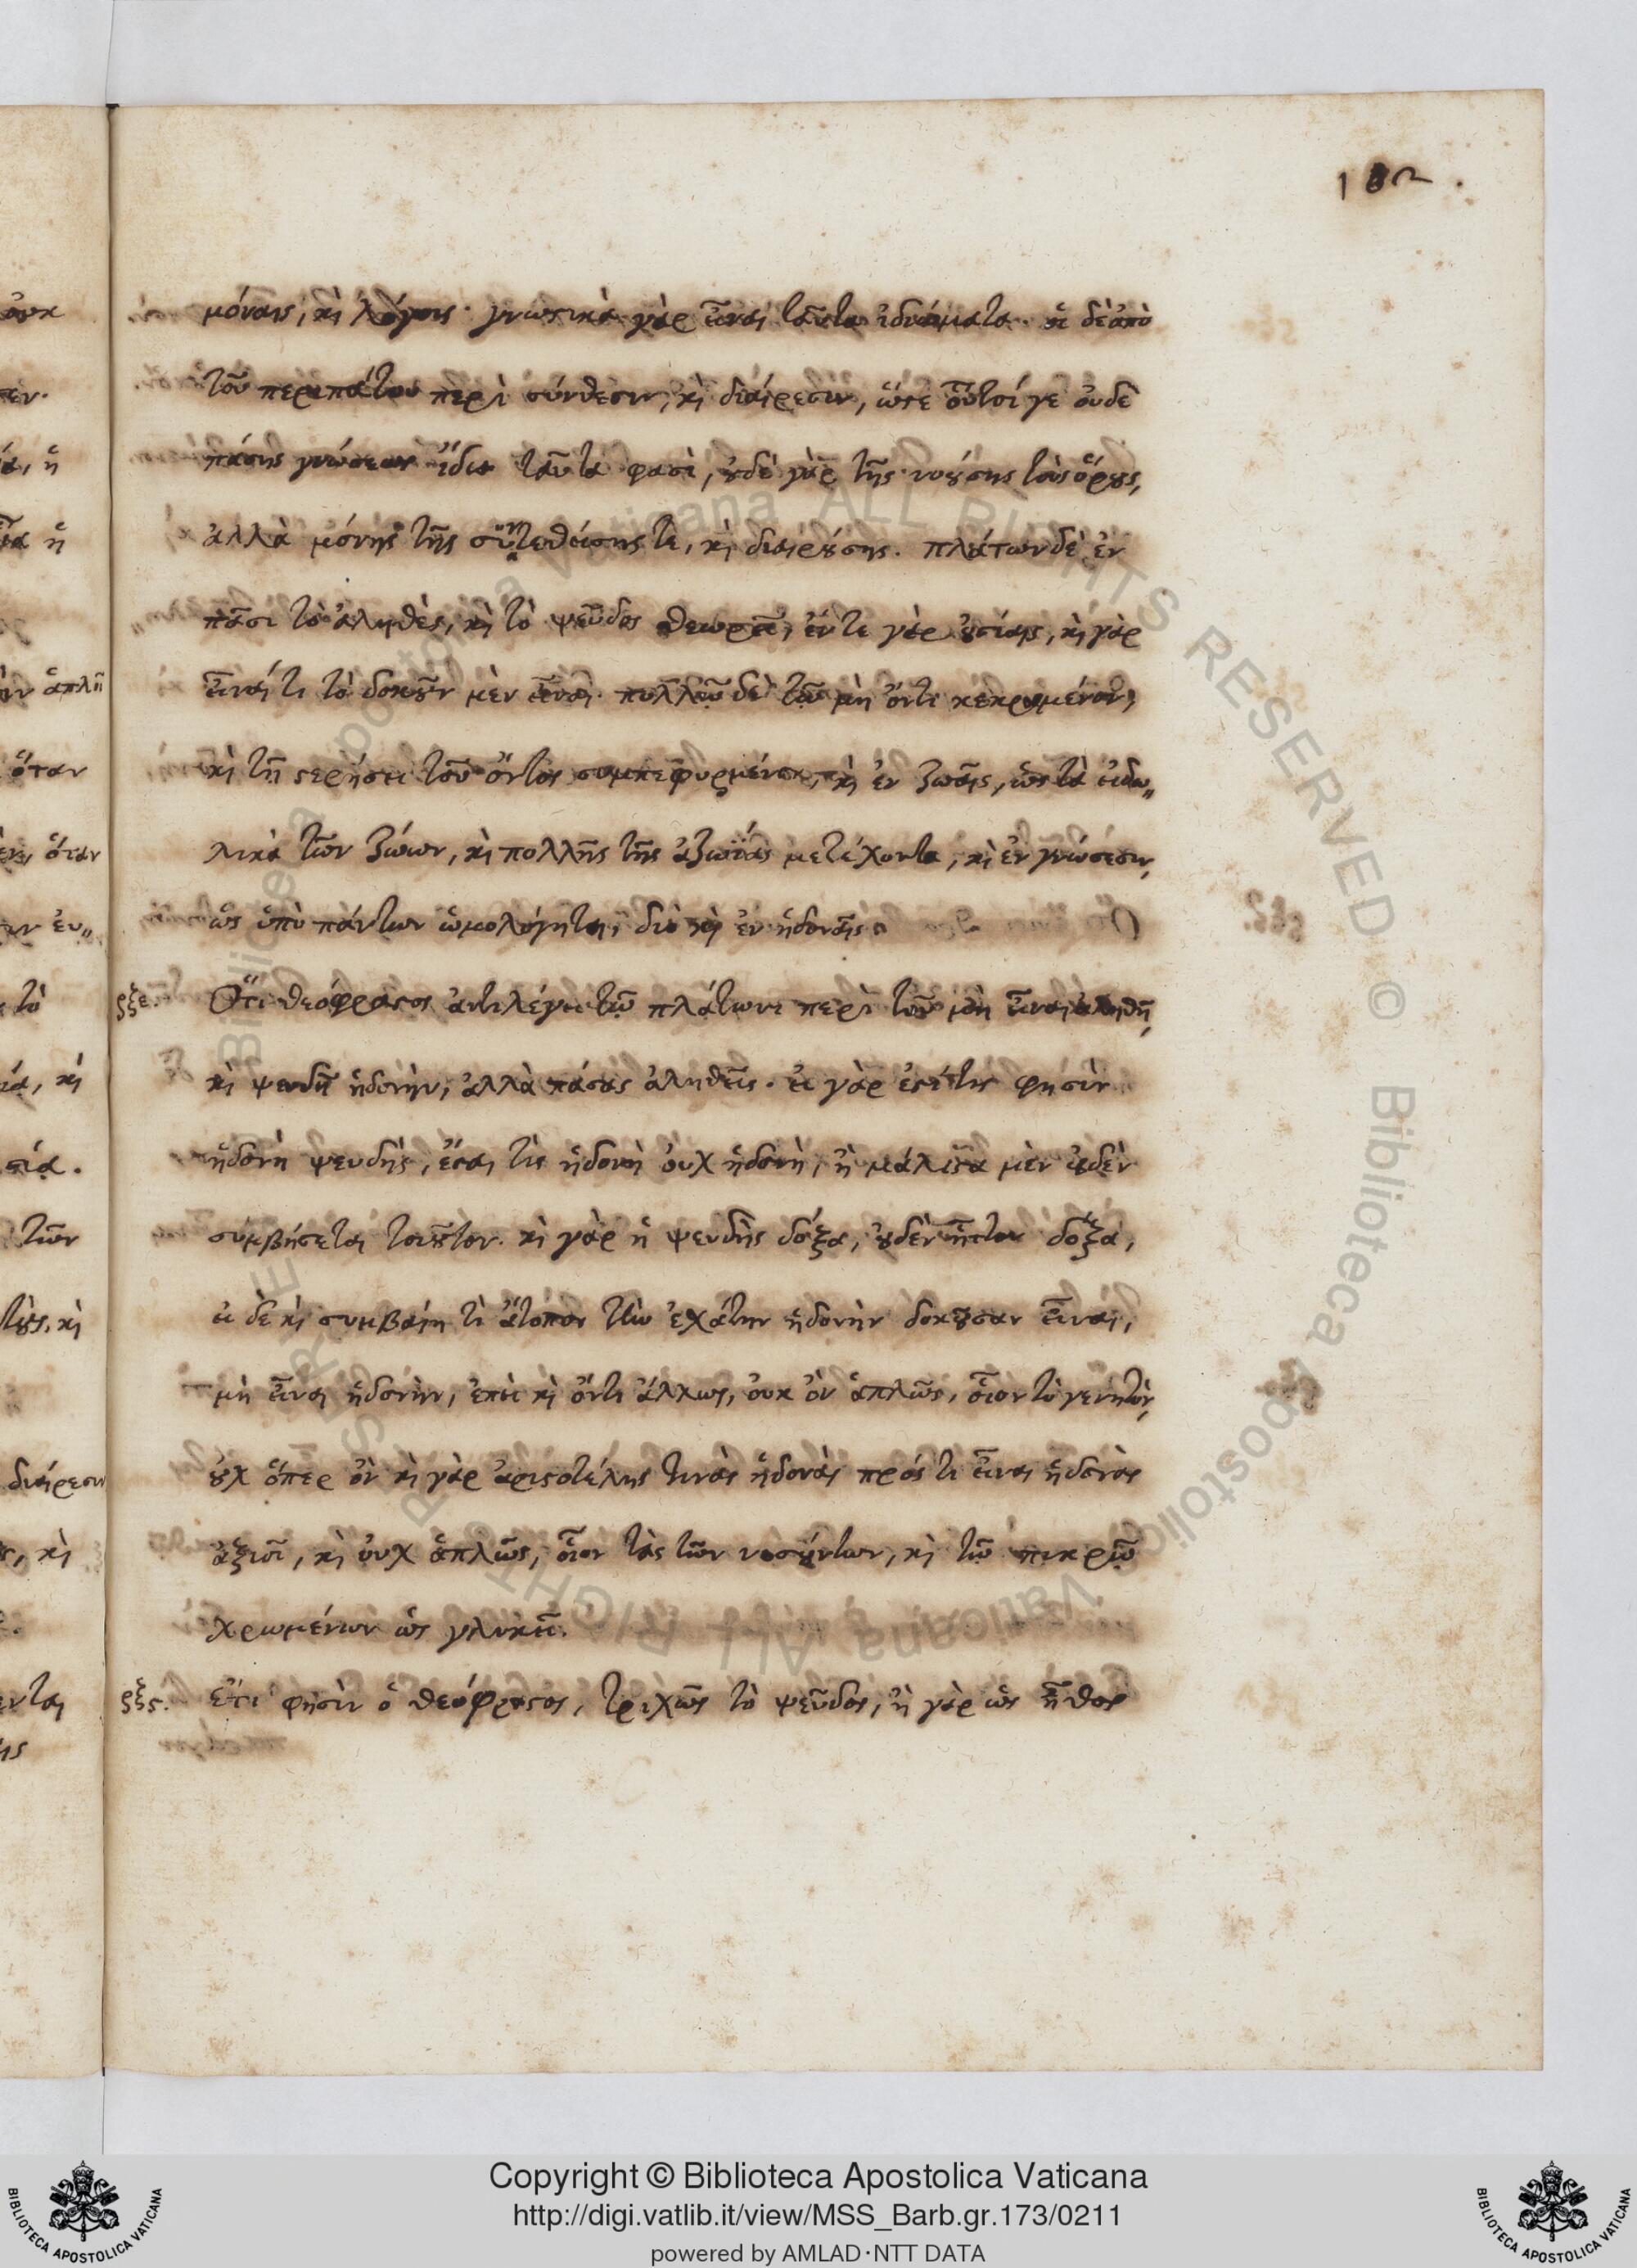 182.
μόναις, κὶ λόγοις· γνωστικὰ γὰρ εἶναι ταῦτα ἰδιώματα. οἱ δὲ ἀπὸ
τοῦ περιπάτου περὶ σύνθεσιν, κὶ διαίρεσιν, ὥστε οὗτοί γε οὐδὲ
πάσης γνώσεως ἴδια ταῦτά φασὶ, οὐδὲ γὰρ τῆς νοούσης τοὺς ὅρους,
ἀλλὰ μόνης τῆς συντεθείσης τε, κὶ διαιρούσης. πλάτων δὲ ἐν
πᾶσι τὸ ἀληθὲς, κὶ τὸ ψεῦδος θεωρεῖ, ἔν τε γὰρ οὐσίαις, κὶ γὰρ
εἶναί τι τὸ δοκοῦν μὲν εἶναι. πολλῷ δὲ τῷ μὴ ὄντι κεκραμένον,
κὶ τῇ στερήσει τοῦ ὄντος συμπεφυρμένον, κὶ ἐν ζωαῖς, ὡς τὰ εἰδω„
λικὰ τῶν ζώων, κὶ πολλῆς τῆς ἀζωΐας μετέχοντα, κὶ ἐν γνώσεσιν,
ὡς ὑπὸ πάντων ὡμολόγηται, διὸ κὶ ἐν ἡδοναῖς.
ρξε. Ὅτι θεόφραστος ἀντιλέγει τῷ πλάτωνι περὶ τοῦ μὴ εἶναι ἀληθῆ,
κὶ ψευδῆ ἡδονὴν, ἀλλὰ πάσας ἀληθεῖς. εἰ γὰρ ἐστί τις φησὶν
ἡδονὴ ψευδὴς, ἔσται τὶς ἡδονὴ οὐχ ἡδονὴ, ἢ μάλιστα μὲν οὐδὲν
συμβήσεται τοιοῦτον. κὶ γὰρ ἡ ψευδὴς δόξα, οὐδὲν ἧττον δόξα,
εἰ δὲ κὶ συμβαίη τὶ ἄτοπον τὴν ἐχάτην ἡδονὴν δοκοῦσαν εἶναι,
μὴ εἶναι ἡδονὴν, ἐπεὶ κὶ ὄντι ἄλλως, οὐκ ὂν ἁπλῶς, οἷον τὸ γενητὸν,
οὐχ ὅπερ ὂν κὶ γὰρ ἀριστοτέλης τινὰς ἡδονὰς πρός τι εἶναι ἡδονὰς
ἀξιοῖ, κὶ οὐχ ἁπλῶς, οἷον τὰς τῶν νοσούντων, κὶ τῷ πικρῷ
χρωμένων ὡς γλυκεῖ.
ρξς. ἔτι φησὶν ὁ θεόφραστος, τριχῶς τὸ ψεῦδος, ἢ γὰρ ὡς ἦθος
Copyright © Biblioteca Apostolica Vaticana
http://digi.vatlib.it/view/MSS_Barb.gr.173/0211
powered by AMLAD·NTT DATA
BIBLIOTECA APOSTOLICA VATICANA
BIBLIOTECA APOSTOLICA VATICANA
Biblioteca Apostolica Vaticana ALL RIGHTS RESERVED © Biblioteca Apostolica Vaticana ALL RIGHTS RESERVED